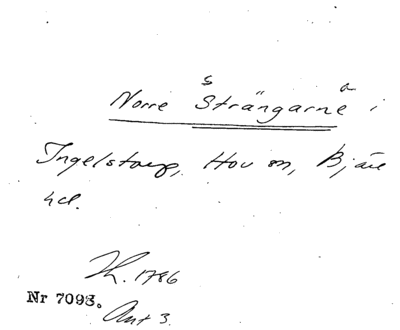 s a
Norre Strängarne i
Ingelstorp, Hov sn, Bjäre
hd.
Th. 1786
Nr 7093.
Ant 3.